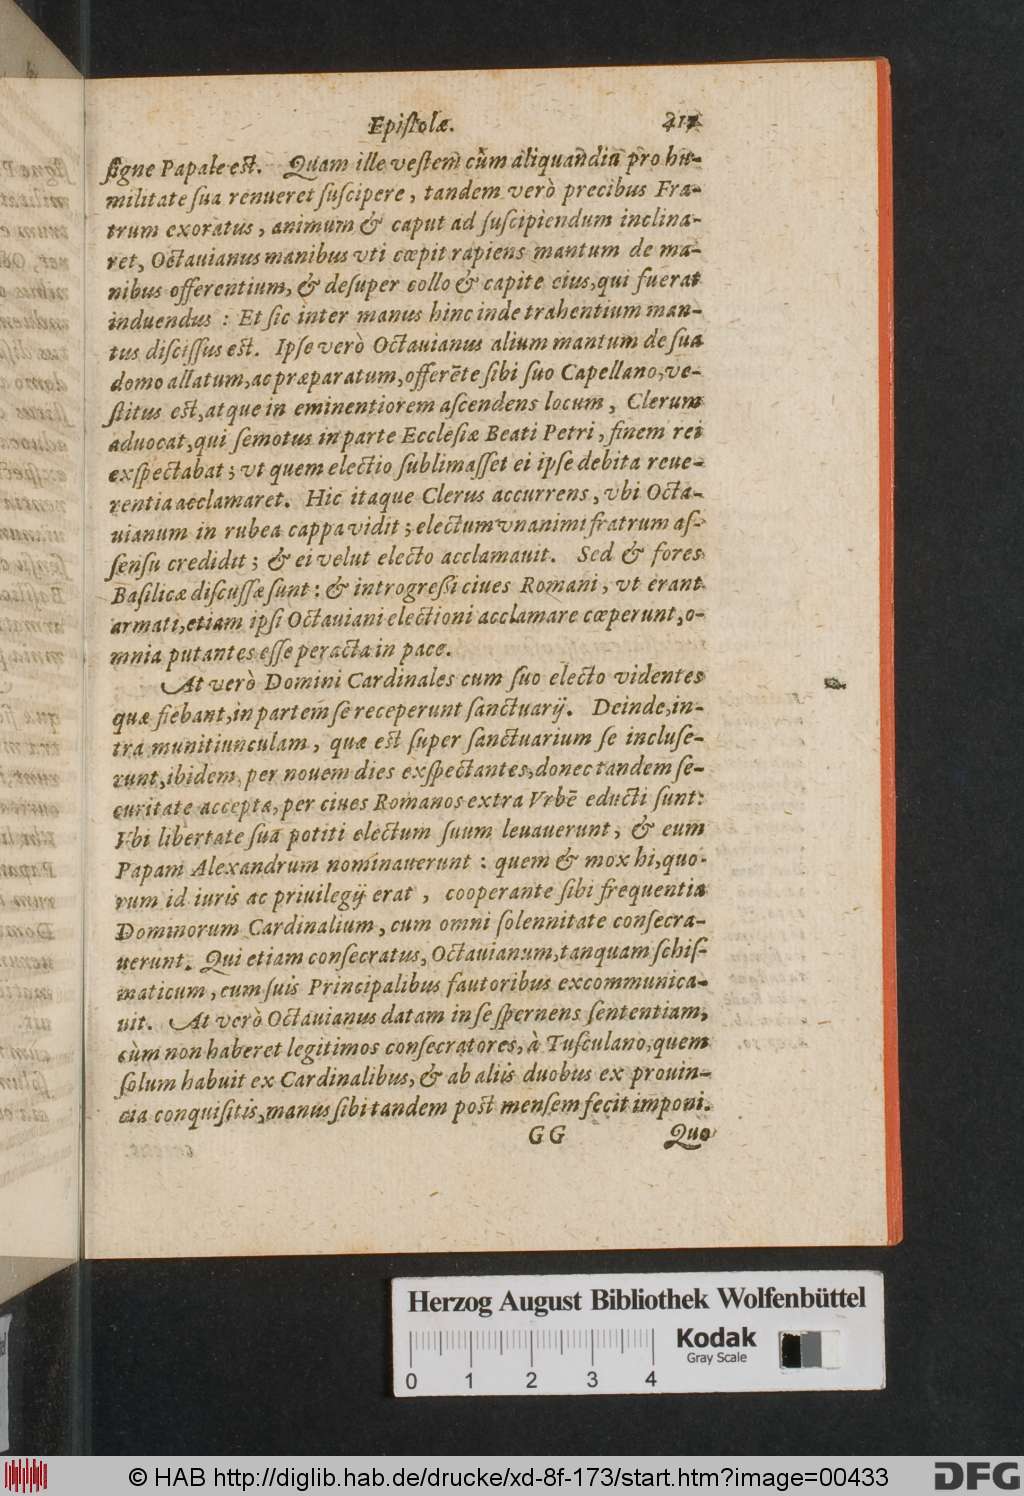 Epistolæ. 417
signe Papale est. Quam ille vestem cùm aliquandiu pro hu-
militate sua renueret suscipere, tandem verò precibus Fra-
trum exoratus, animum & caput ad suscipiendum inclina-
ret, Octauianus manibus vti cœpit rapiens mantum de ma-
nibus offerentium, & desuper collo & capite eius, qui fuerat
induendus : Et sic inter manus hinc inde trahentium man-
tus discissus est. Ipse verò Octauianus alium mantum de sua
domo allatum, ac præparatum, offerẽte sibi suo Capellano, ve-
stitus est, atque in eminentiorem ascendens locum, Clerum
aduocat, qui semotus in parte Ecclesiæ Beati Petri, finem rei
exspectabat; vt quem electio sublimasset ei ipse debita reue-
rentia acclamaret. Hic itaque Clerus accurrens, vbi Octa-
uianum in rubea cappa vidit; electum vnanimi fratrum as-
sensu credidit; & ei velut electo acclamauit. Sed & fores
Basilicæ discussæ sunt: & introgressi ciues Romani, vt erant
armati, etiam ipsi Octauiani electioni acclamare cœperunt, o-
mnia putantes esse peracta in pace.
At verò Domini Cardinales cum suo electo videntes
quæ fiebant, in partem se receperunt sanctuarij. Deinde, in-
tra munitiunculam, quæ est super sanctuarium se incluse-
runt, ibidem, per nouem dies exspectantes, donec tandem se-
curitate accepta, per ciues Romanos extra Vrbẽ educti sunt:
Vbi libertate sua potiti electum suum leuauerunt, & eum
Papam Alexandrum nominauerunt : quem & mox hi, quo-
rum id iuris ac priuilegij erat, cooperante sibi frequentia
Dominorum Cardinalium, cum omni solennitate consecra-
uerunt. Qui etiam consecratus, Octauianum, tanquam schis-
maticum, cum suis Principalibus fautoribus excommunica-
uit. At verò Octauianus datam in se spernens sententiam,
cùm non haberet legitimos consecratores, à Tusculano, quem
solum habuit ex Cardinalibus, & ab aliis duobus ex prouin-
cia conquisitis, manus sibi tandem post mensem fecit imponi.
GG Quo
Herzog August Bibliothek Wolfenbüttel
Kodak
Gray Scale
0 1 2 3 4
© HAB http://diglib.hab.de/drucke/xd-8f-173/start.htm?image=00433
DFG